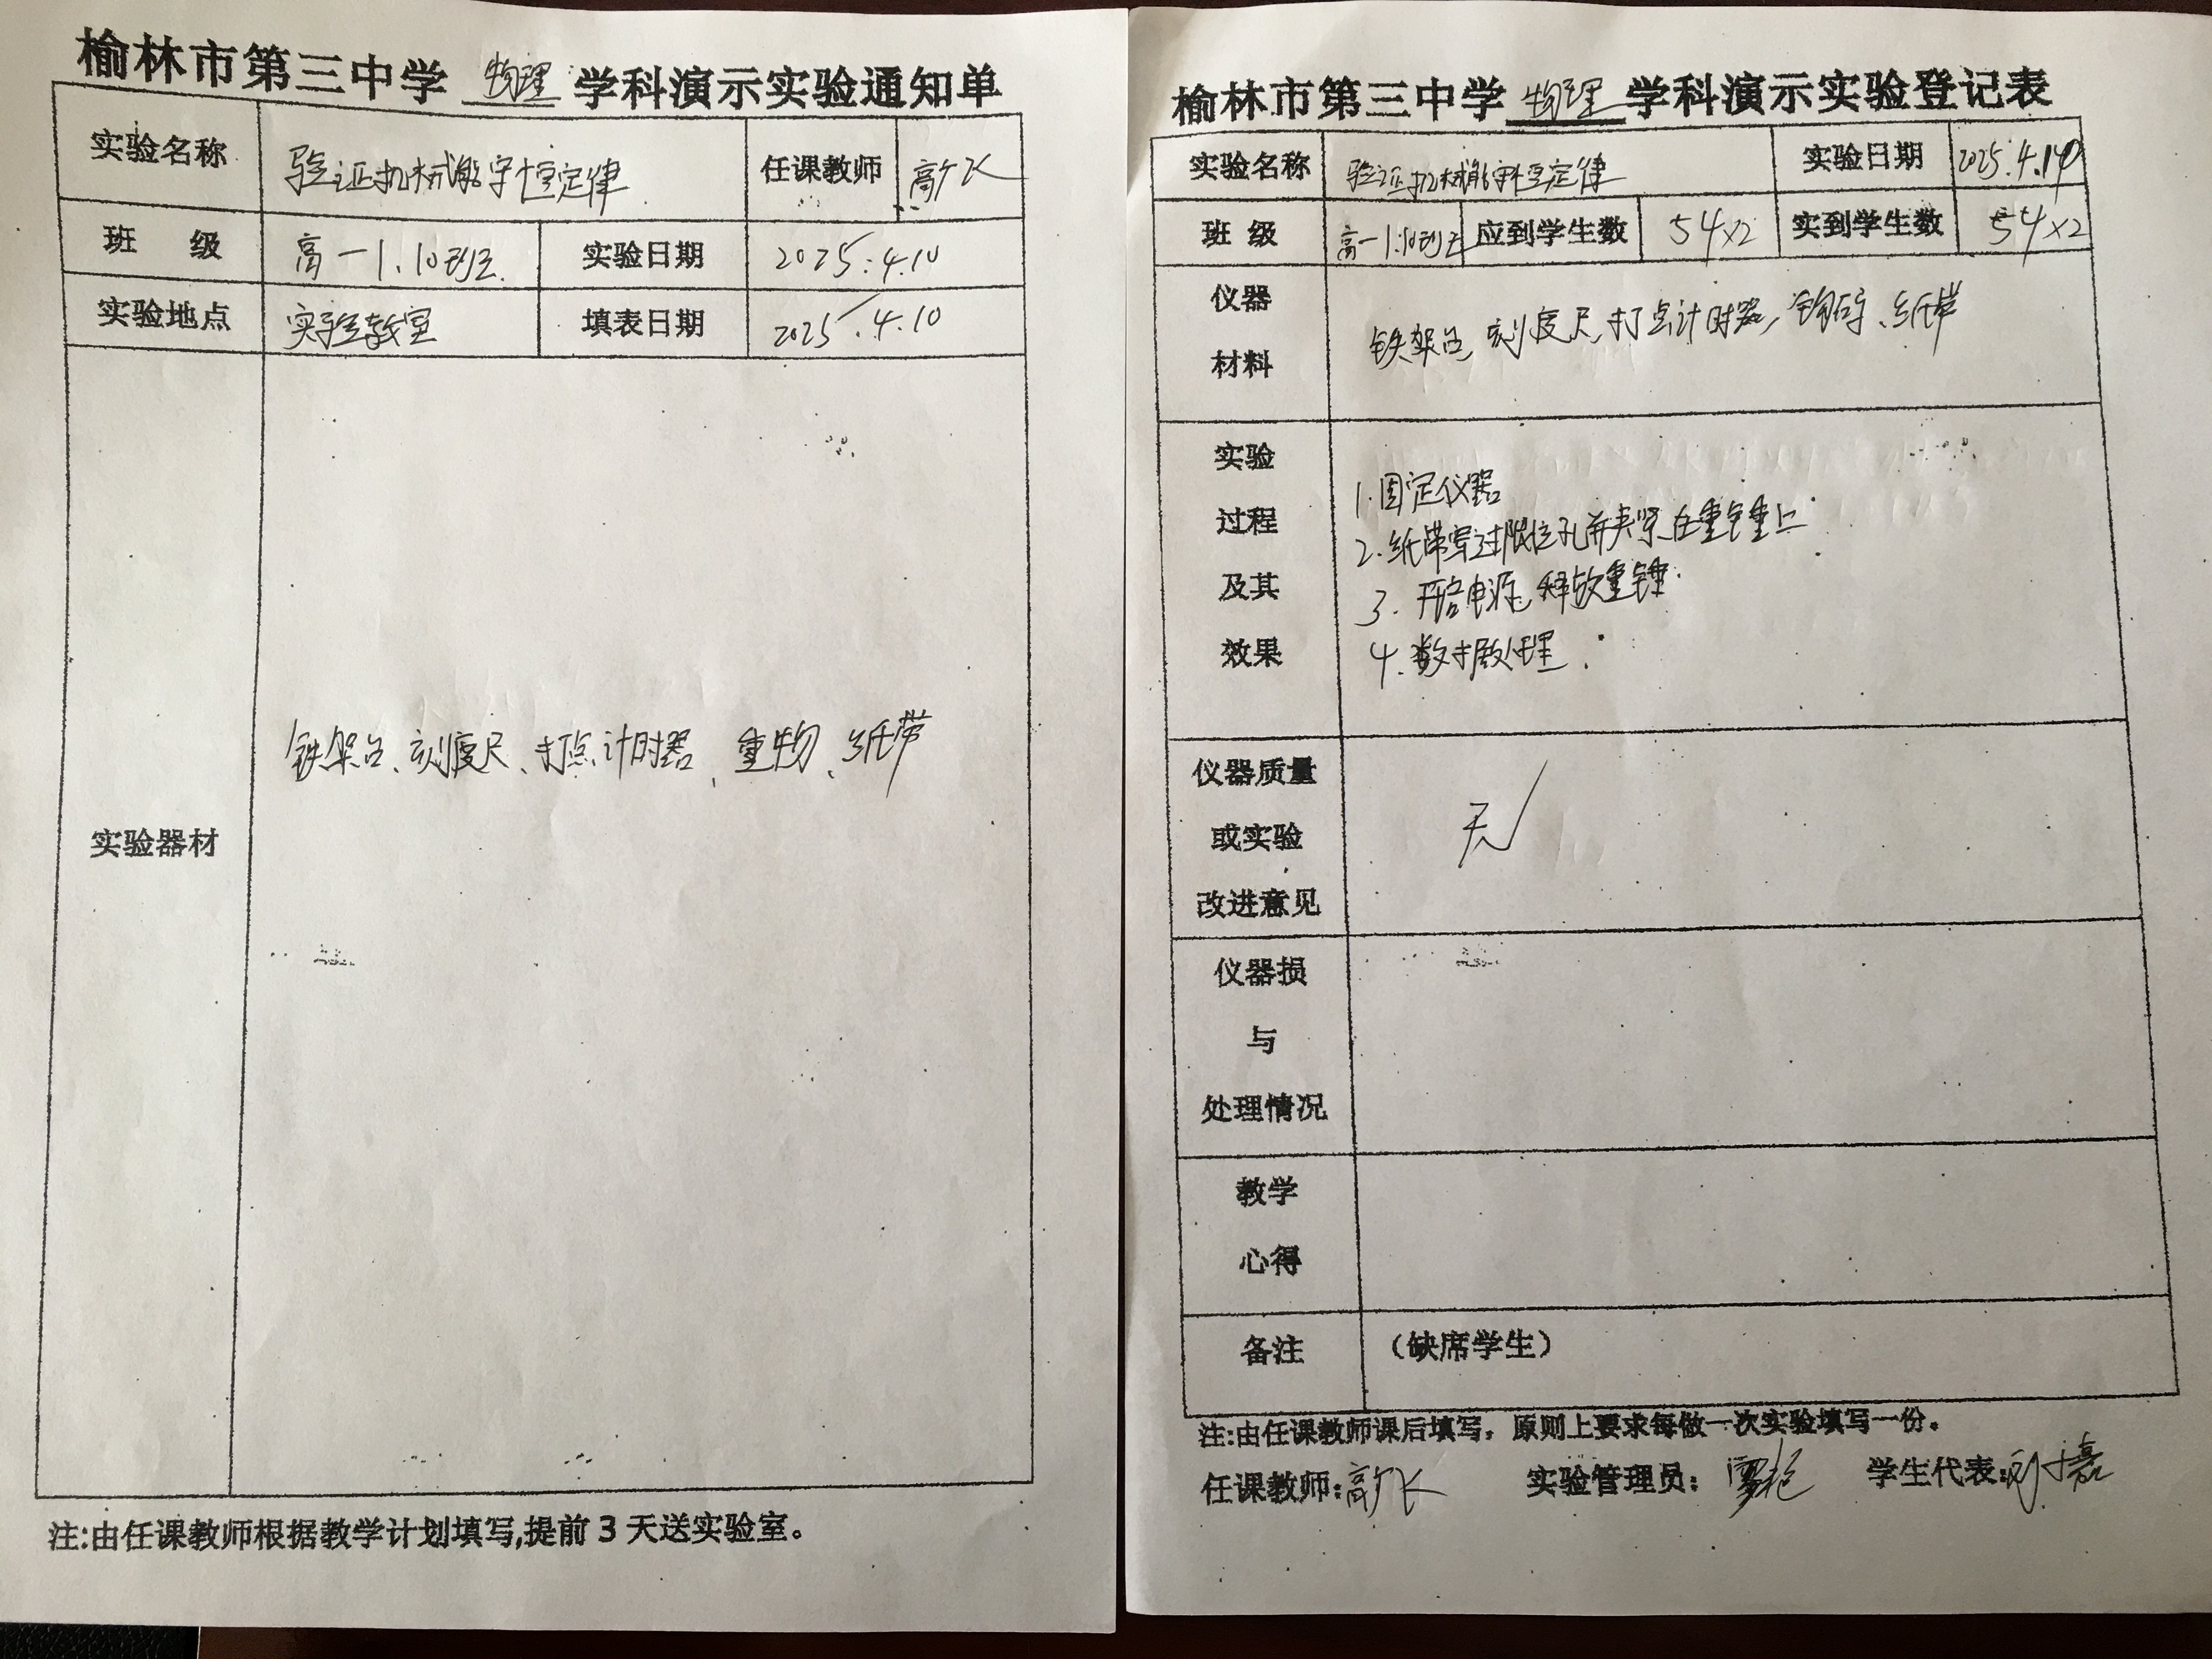 榆林市第三中学 物理 学科演示实验通知单
实验名称 验证机械能守恒定律 任课教师
班 级 高一1.10班 实验日期 2025.4.10
实验地点 实验教室 填表日期 2025.4.10
实验器材 铁架台、刻度尺、打点计时器、重物、纸带
注:由任课教师根据教学计划填写,提前3天送实验室。
榆林市第三中学 物理 学科演示实验登记表
实验名称 验证机械能守恒定律 实验日期 2025.4.10
班 级 高一1.10班 应到学生数 54×2 实到学生数 54×2
仪器
材料
铁架台,刻度尺,打点计时器,钩码、纸带
实验
过程
及其
效果
1.固定仪器
2.纸带穿过限位孔并夹紧在重锤上
3.开启电源,释放重锤.
4.数据处理.
仪器质量
或实验
改进意见
无
仪器损
与
处理情况
教学
心得
备注 (缺席学生)
注:由任课教师课后填写，原则上要求每做一次实验填写一份。
任课教师: 实验管理员: 学生代表: